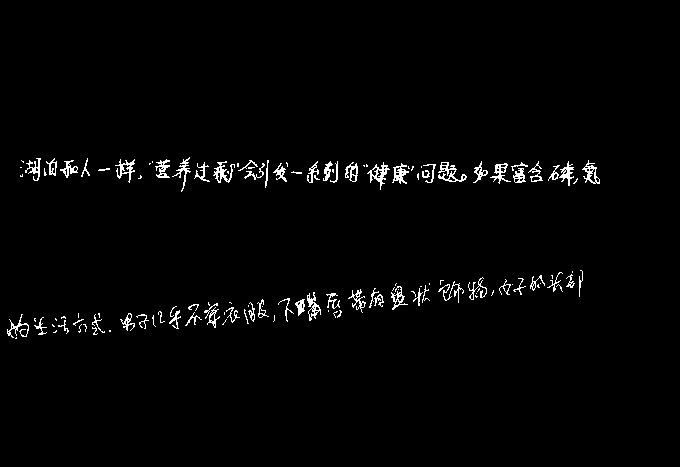 湖泊和人一样,“营养过剩”会引发一系列的“健康”问题。如果富含磷,氮
的生活方式.男子几乎不穿衣服,下嘴唇带有盘状饰物,女子的头部